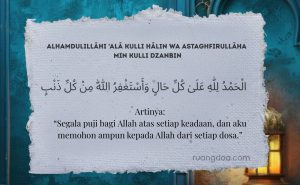 ALHAMDULILLÂHI 'ALÂ KULLI HÂLIN WA ASTAGHFIRULLÂHA
MIN KULLI DZANBIN
الْحَمْدُ لِلّٰهِ عَلَىٰ كُلِّ حَالٍ وَأَسْتَغْفِرُ اللّٰهَ مِنْ كُلِّ ذَنْبٍ
Artinya:
"Segala puji bagi Allah atas setiap keadaan, dan aku
memohon ampun kepada Allah dari setiap dosa."
ruangdoa.com